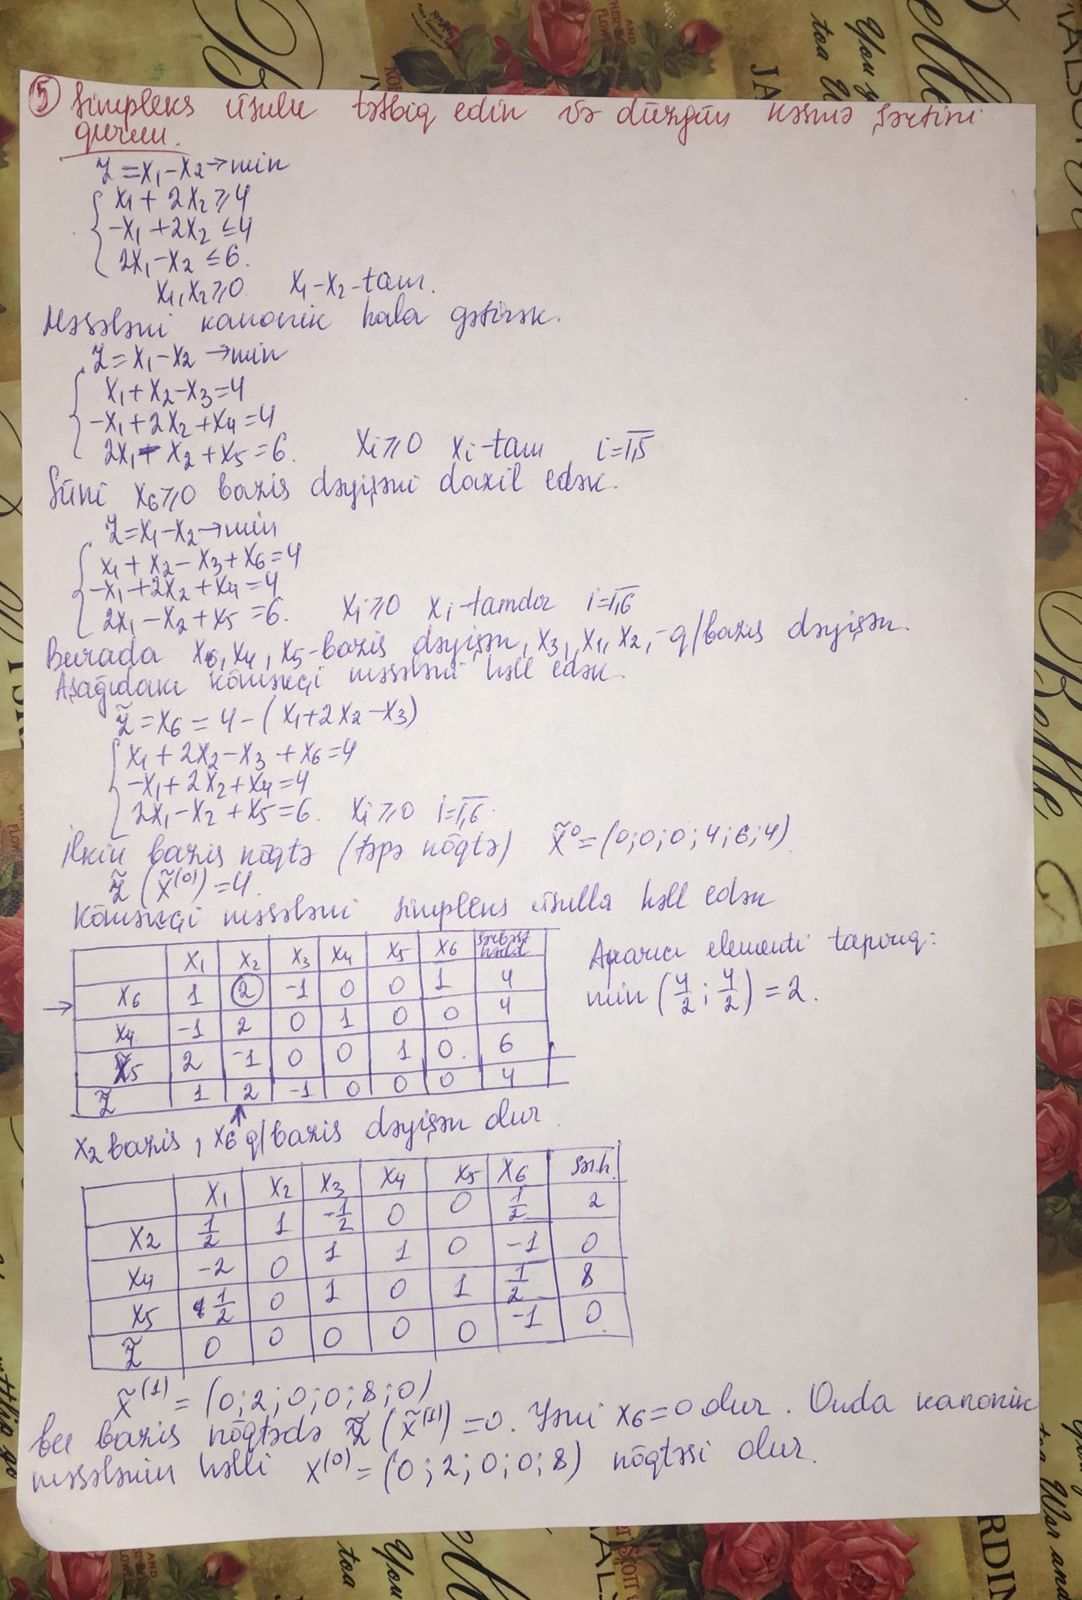 5 Simpleks üsulu tətbiq edin və düzgün kəsmə şərtini
qurun.
Z=x₁-x₂→min
x₁+2x₂≥4
-x₁+2x₂≤4
2x₁-x₂≤6.
x₁,x₂≥0 x₁-x₂-tam.
Məsələni kanonik hala gətirək.
Z=x₁-x₂→min
x₁+x₂-x₃=4
-x₁+2x₂+x₄=4
2x₁-x₂+x₅=6. xᵢ≥0 xᵢ-tam i=1,5
Süni x₆≥0 bazis dəyişəni daxil edək.
Z=x₁-x₂→min
x₁+x₂-x₃+x₆=4
-x₁+2x₂+x₄=4
2x₁-x₂+x₅=6. xᵢ≥0 xᵢ-tamdır i=1,6
Burada x₆,x₄,x₅-bazis dəyişən, x₃,x₁,x₂,-q/bazis dəyişən.
Aşağıdakı köməkçi məsələni həll edək.
Z̃=x₆=4-(x₁+2x₂-x₃)
x₁+2x₂-x₃+x₆=4
-x₁+2x₂+x₄=4
2x₁-x₂+x₅=6. xᵢ≥0 i=1,6.
İlkin bazis nöqtə (təpə nöqtə) x̃⁰=(0;0;0;4;6;4)
Z̃(x̃⁽⁰⁾)=4.
Köməkçi məsələni simpleks üsulla həll edək
x₁ x₂ x₃ x₄ x₅ x₆ sərbəst hədd
→ x₆ 1 2 -1 0 0 1 4
x₄ -1 2 0 1 0 0 4
x₅ 2 -1 0 0 1 0. 6
Z̃ 1 2 -1 0 0 0 4
Aparıcı elementi tapırıq:
min (4/2; 4/2) = 2.
x₂ bazis, x₆ q/bazis dəyişən olur
x₁ x₂ x₃ x₄ x₅ x₆ sər.h.
x₂ 1/2 1 -1/2 0 0 1/2 2
x₄ -2 0 1 1 0 -1 0
x₅ 1/2 0 1 0 1 1/2 8
Z̃ 0 0 0 0 0 -1 0.
x̃⁽¹⁾=(0;2;0;0;8;0)
bu bazis nöqtədə Z̃(x̃⁽¹⁾)=0. Yəni x₆=0 olur. Onda kanonik
məsələnin həlli x⁽⁰⁾=(0;2;0;0;8) nöqtəsi olur.